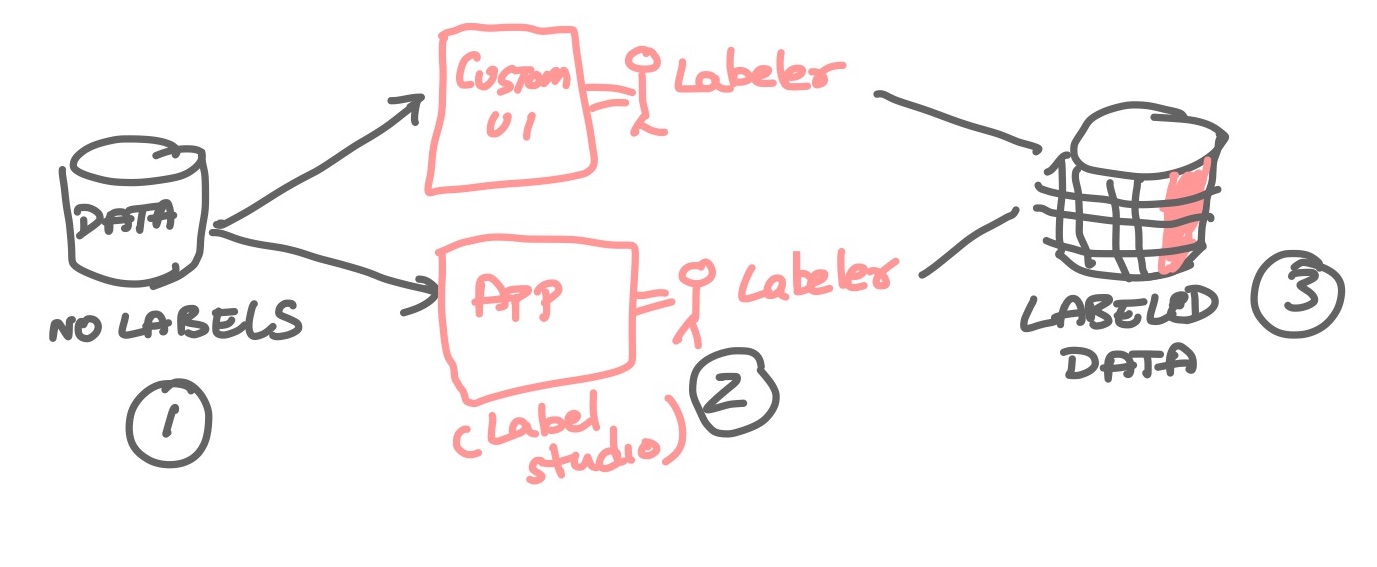 DATA
NO LABELS
1
Custom
UI
Labeler
App
Labeler
(Label
studio)
2
LABELED
DATA
3